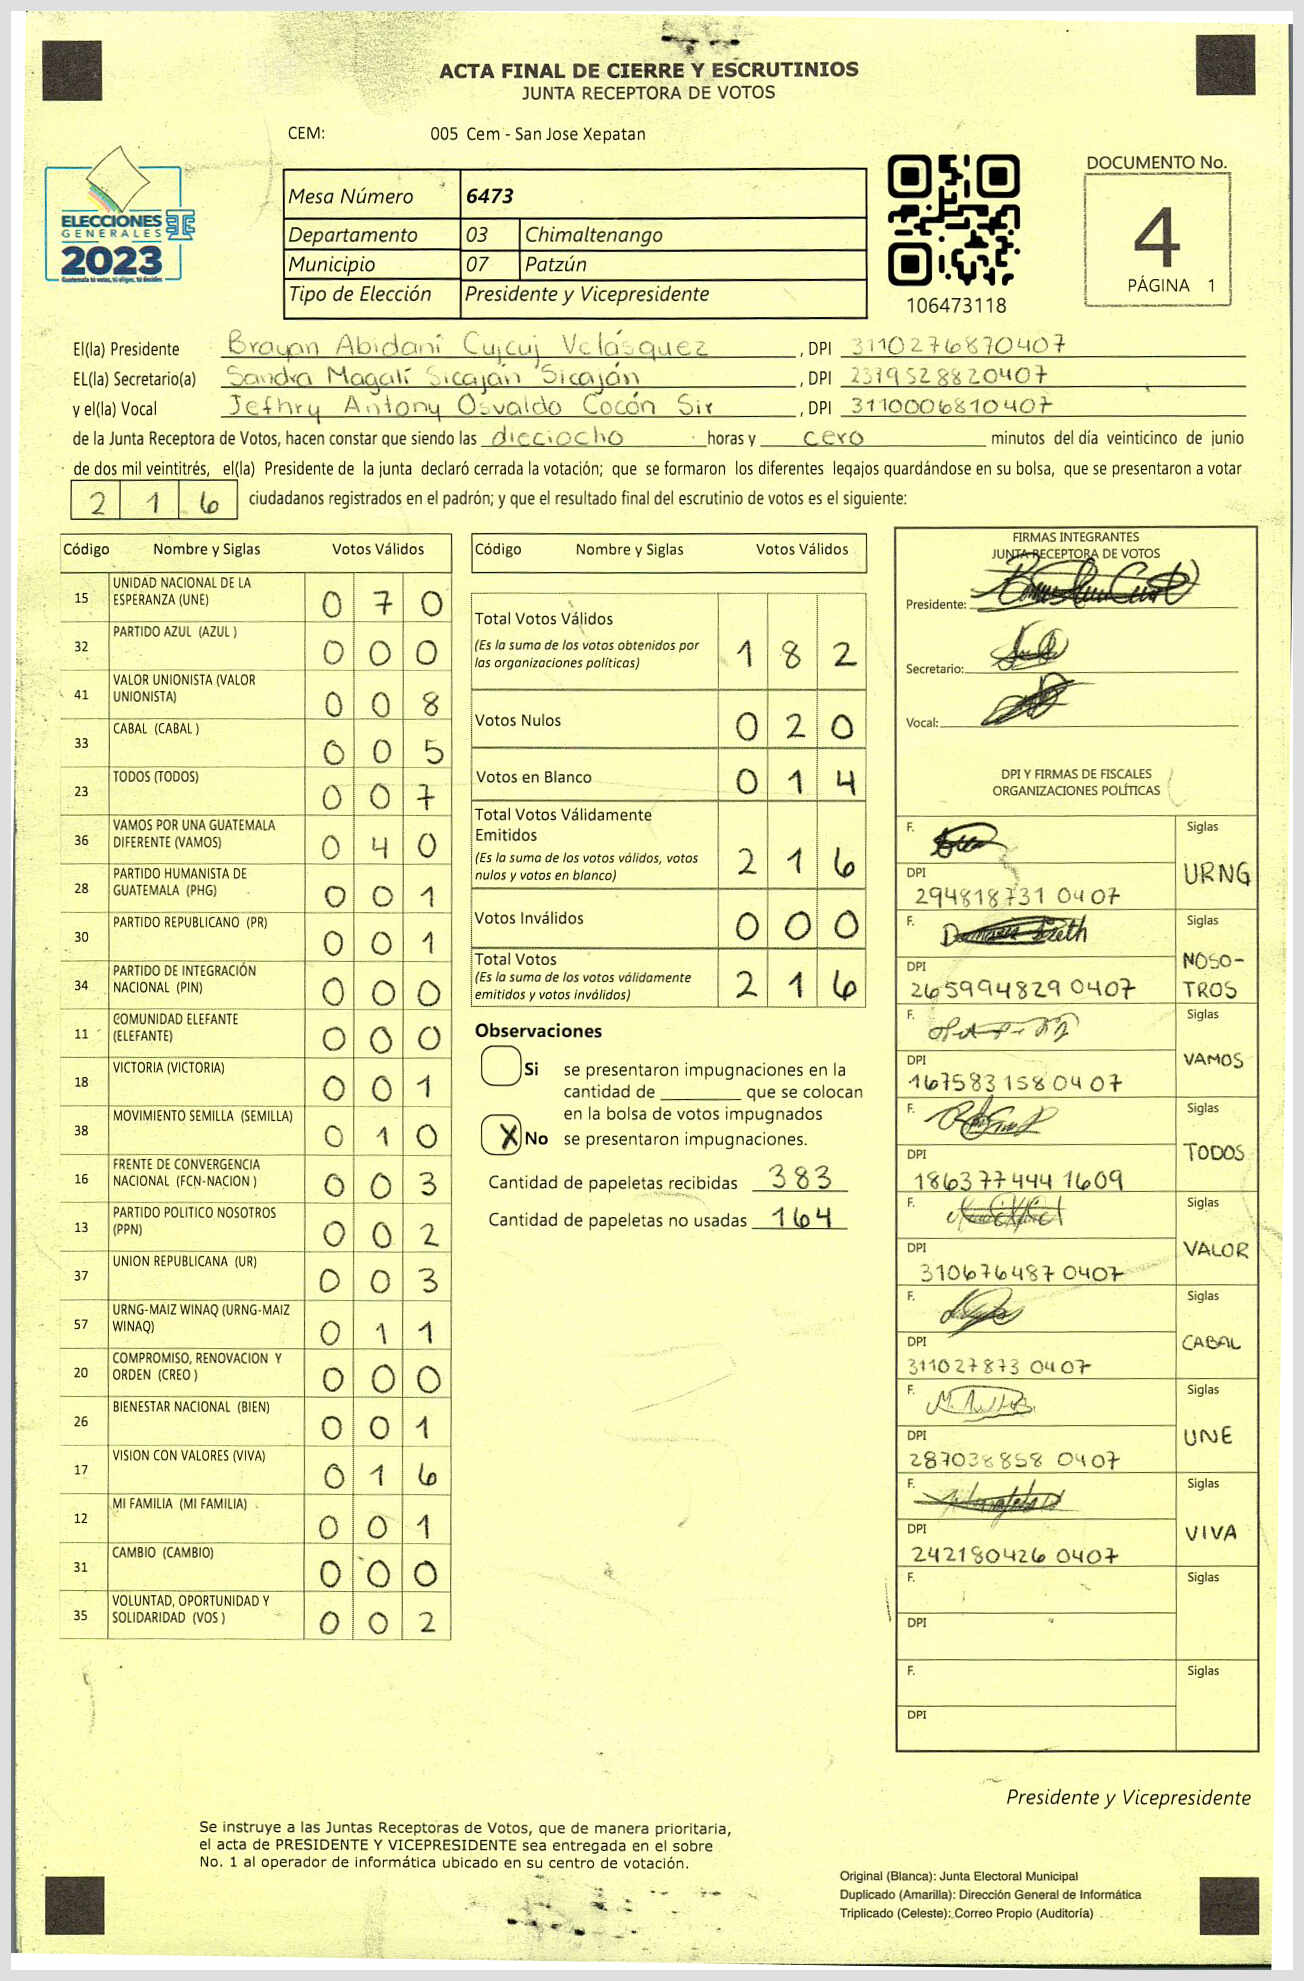 ACTA FINAL DE CIERRE Y ESCRUTINIOS
JUNTA RECEPTORA DE VOTOS
CEM: 005 Cem - San Jose Xepatan
ELECCIONES
GENERALES
2023
Mesa Número 6473
Departamento 03 Chimaltenango
Municipio 07 Patzún
Tipo de Elección Presidente y Vicepresidente
106473118
DOCUMENTO No.
4
PÁGINA 1
El(la) Presidente Brayan Abidaní Cujcuj Velásquez, DPI 3110276870407
EL(la) Secretario(a) Sandra Magalí Sicaján Sicaján, DPI 2379528820407
y el(la) Vocal Jefhry Antony Osvaldo Cocón Sir, DPI 3110006810407
de la Junta Receptora de Votos, hacen constar que siendo las dieciocho horas y cero minutos del día veinticinco de junio
de dos mil veintitrés, el(la) Presidente de la junta declaró cerrada la votación; que se formaron los diferentes legajos quardándose en su bolsa, que se presentaron a votar
216 ciudadanos registrados en el padrón; y que el resultado final del escrutinio de votos es el siguiente:
Código Nombre y Siglas Votos Válidos
15 UNIDAD NACIONAL DE LA
ESPERANZA (UNE) 070
32 PARTIDO AZUL (AZUL ) 000
41 VALOR UNIONISTA (VALOR
UNIONISTA) 008
33 CABAL (CABAL ) 005
23 TODOS (TODOS) 007
36 VAMOS POR UNA GUATEMALA
DIFERENTE (VAMOS) 040
28 PARTIDO HUMANISTA DE
GUATEMALA (PHG) 001
30 PARTIDO REPUBLICANO (PR) 001
34 PARTIDO DE INTEGRACIÓN
NACIONAL (PIN) 000
11 COMUNIDAD ELEFANTE
(ELEFANTE) 000
18 VICTORIA (VICTORIA) 001
38 MOVIMIENTO SEMILLA (SEMILLA) 010
16 FRENTE DE CONVERGENCIA
NACIONAL (FCN-NACION ) 003
13 PARTIDO POLITICO NOSOTROS
(PPN) 002
37 UNION REPUBLICANA (UR) 003
57 URNG-MAIZ WINAQ (URNG-MAIZ
WINAQ) 011
20 COMPROMISO, RENOVACION Y
ORDEN (CREO ) 000
26 BIENESTAR NACIONAL (BIEN) 001
17 VISION CON VALORES (VIVA) 016
12 MI FAMILIA (MI FAMILIA) 001
31 CAMBIO (CAMBIO) 000
35 VOLUNTAD, OPORTUNIDAD Y
SOLIDARIDAD (VOS ) 002
Código Nombre y Siglas Votos Válidos
Total Votos Válidos
(Es la suma de los votos obtenidos por
las organizaciones políticas) 182
Votos Nulos 020
Votos en Blanco 014
Total Votos Válidamente
Emitidos
(Es la suma de los votos válidos, votos
nulos y votos en blanco) 216
Votos Inválidos 000
Total Votos
(Es la suma de los votos válidamente
emitidos y votos inválidos) 216
Observaciones
Si se presentaron impugnaciones en la
cantidad de ________ que se colocan
en la bolsa de votos impugnados
X No se presentaron impugnaciones.
Cantidad de papeletas recibidas 383
Cantidad de papeletas no usadas 164
FIRMAS INTEGRANTES
JUNTA RECEPTORA DE VOTOS
Presidente:
Secretario:
Vocal:
DPI Y FIRMAS DE FISCALES
ORGANIZACIONES POLÍTICAS
F. Siglas
URNG
DPI
294818731 0407
F. Siglas
NOSO-
TROS
DPI
265994829 0407
F. Siglas
VAMOS
DPI
167583158 0407
F. Siglas
TODOS
DPI
186377444 1609
F. Siglas
VALOR
DPI
310676487 0407
F. Siglas
CABAL
DPI
311027873 0407
F. Siglas
UNE
DPI
287038858 0407
F. Siglas
VIVA
DPI
242180426 0407
F. Siglas
DPI
F. Siglas
DPI
Presidente y Vicepresidente
Se instruye a las Juntas Receptoras de Votos, que de manera prioritaria,
el acta de PRESIDENTE Y VICEPRESIDENTE sea entregada en el sobre
No. 1 al operador de informática ubicado en su centro de votación.
Original (Blanca): Junta Electoral Municipal
Duplicado (Amarilla): Dirección General de Informática
Triplicado (Celeste): Correo Propio (Auditoría)